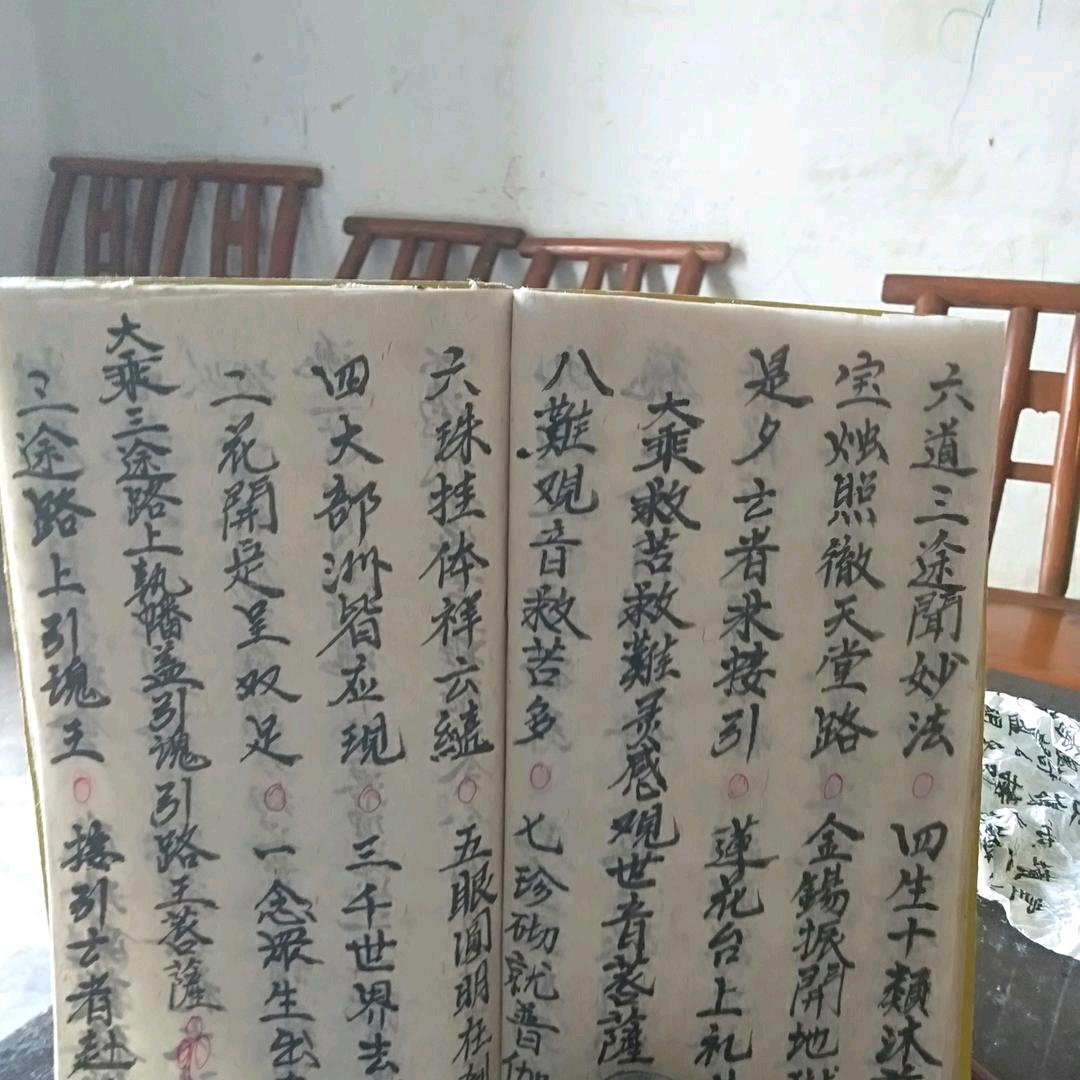 六道三途聞妙法 四生十類沐
宝烛照徹天堂路 金錫振開地
是夕亡者来接引 蓮花台上礼
大乘救苦救難灵感观世音菩薩
八難观音救苦多 七珍砌就普
六珠挂体祥云繞 五眼圓明在
四大部洲皆应現 三千世界去
二花開足呈双足 一念眾生出
大乘三途路上執幡盖引魂引路王菩薩
三途路上引魂王 接引亡者赴